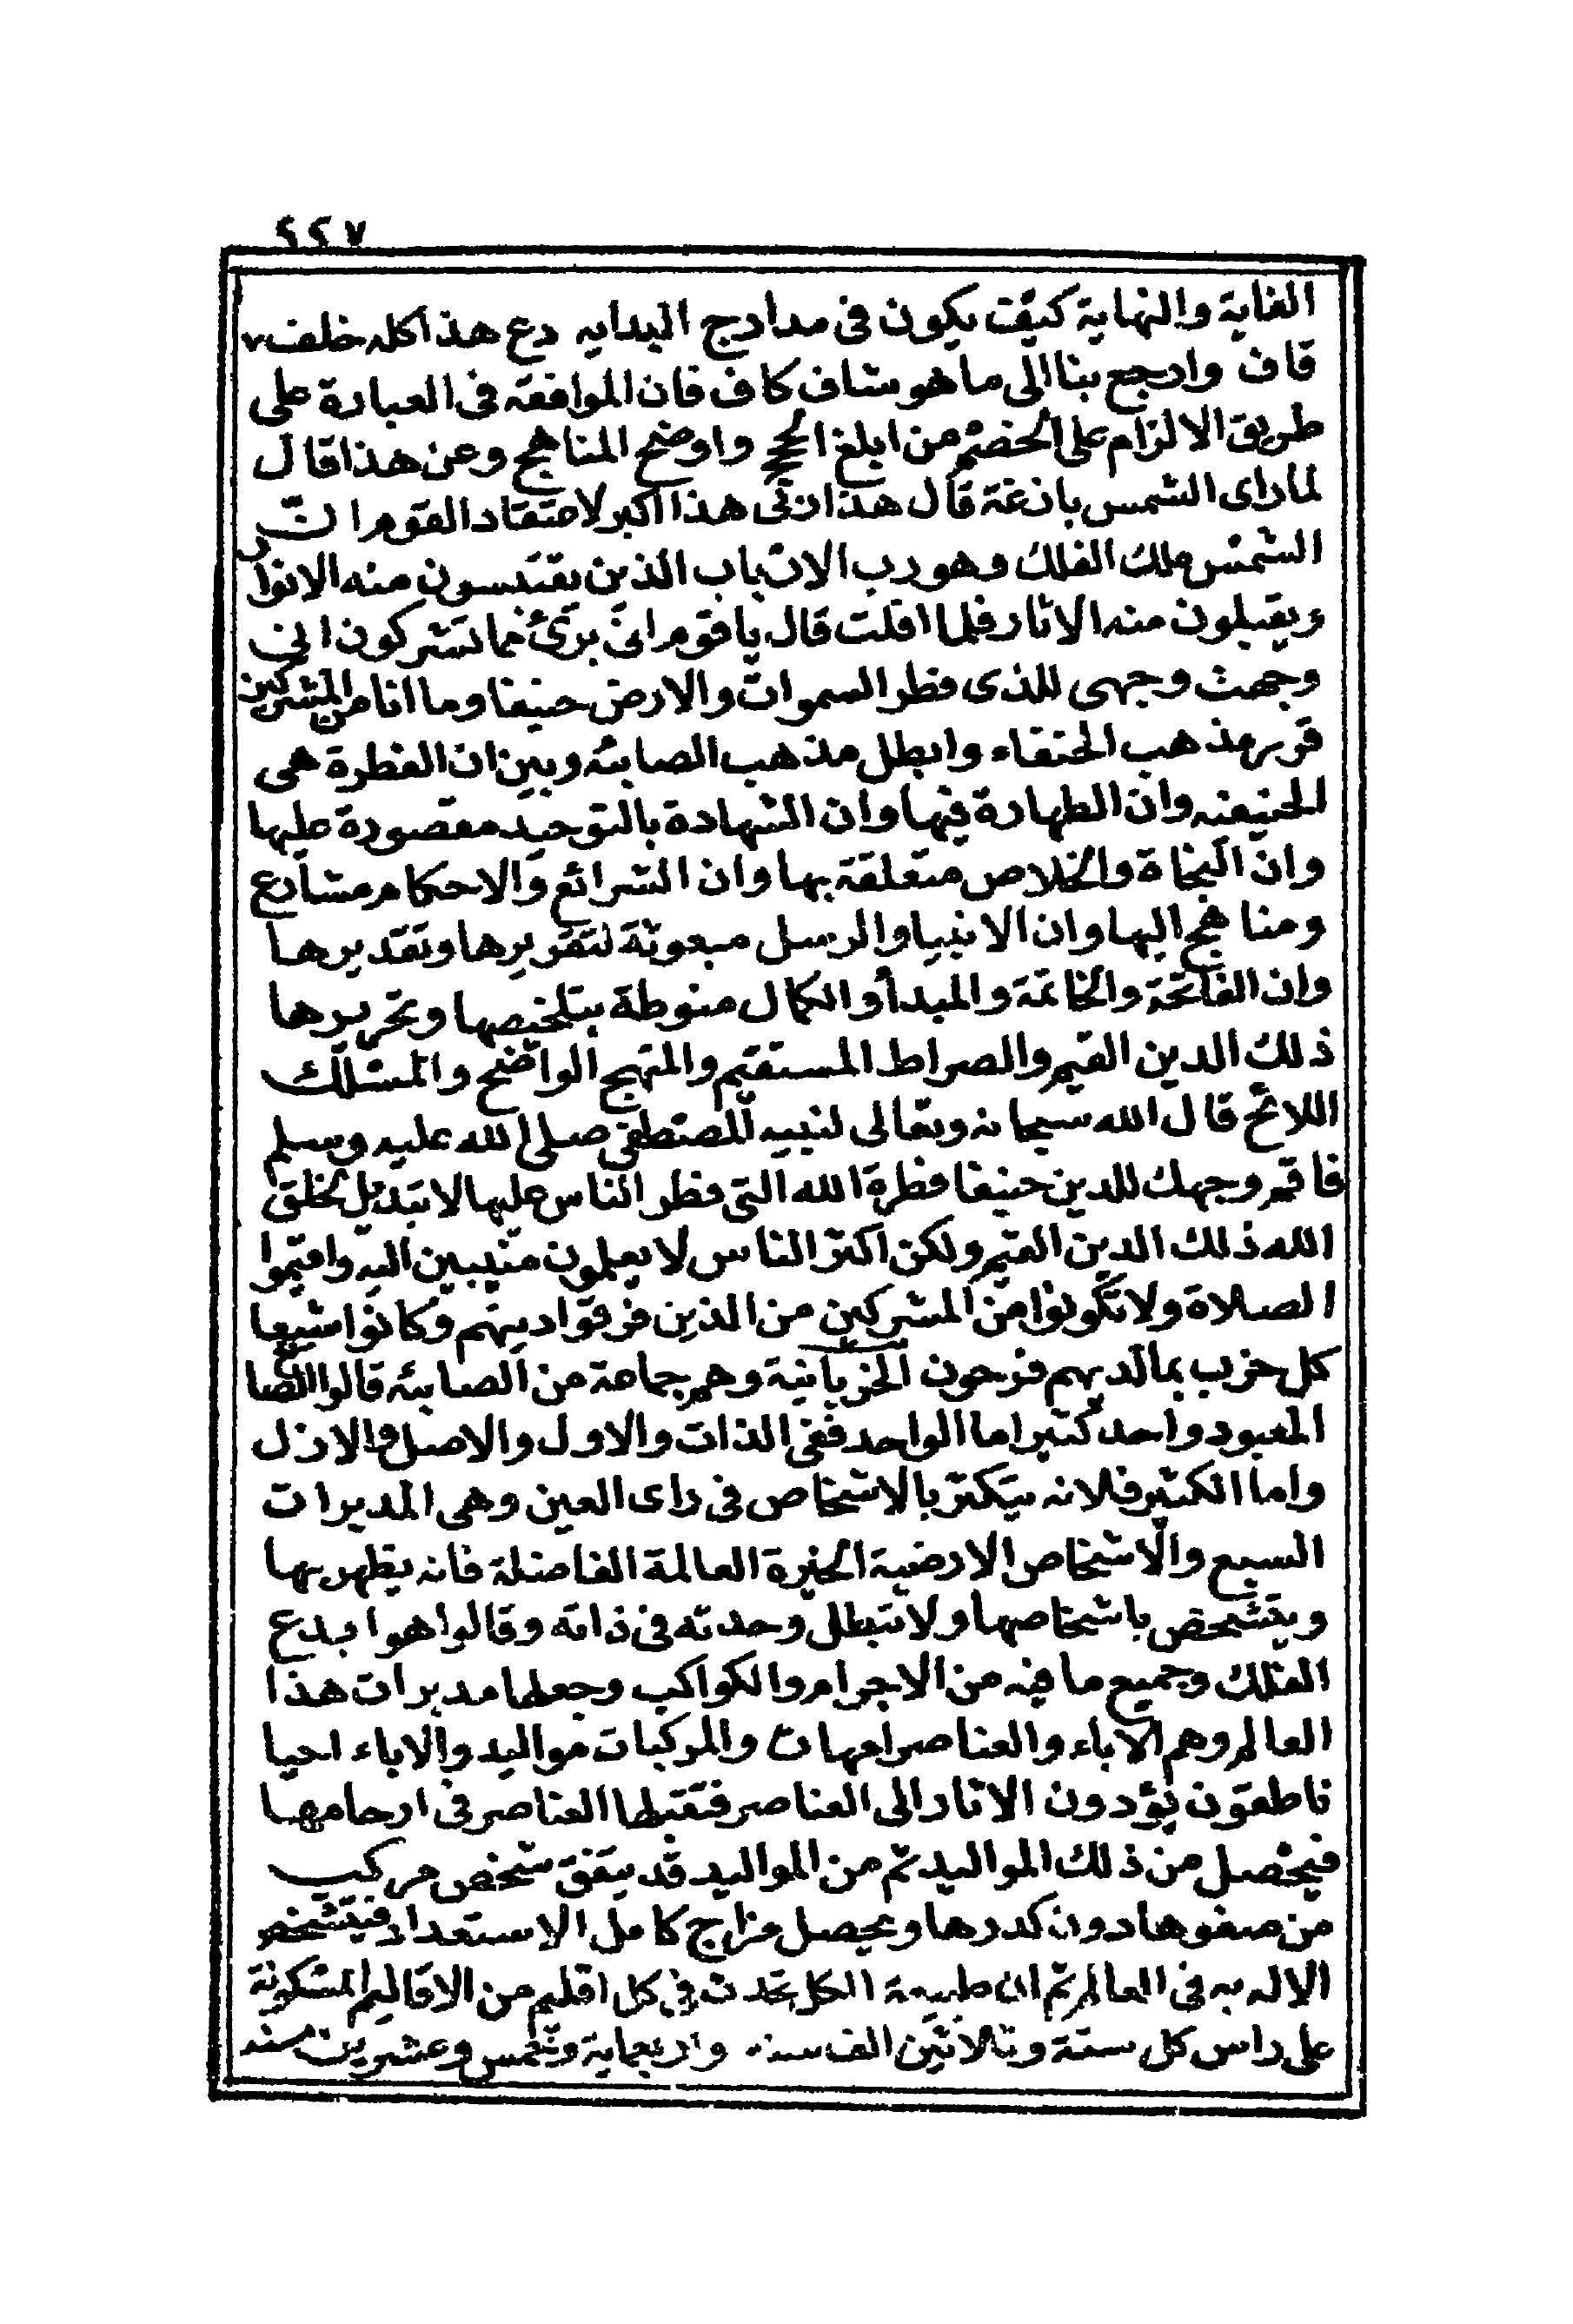 ٢٢٧
الغاية والنهاية كيف يكون فى مدارج البدايه دع هذا كله خلف
قاف وارجع بنا الى ما هو شاف كاف فان الموافقه فى العبارة على
طريق الالزام على الخصم من ابلغ الحجج واوضح المناهج وعن هذا قال
لما راى الشمس بازغة قال هذا ربى هذا اكبر لاعتقاد القوم ان
الشمس ملك الفلك وهو رب الارباب الذين يقتبسون منه الانوار
ويقبلون منه الاثار فلما افلت قال يا قوم انى برئ مما تشركون انى
وجهت وجهى للذى فطر السموات والارض حنيفا وما انا من المشركين
قرر مذهب الحنفاء وابطل مذهب الصابئه وبين ان الفطرة هى
الحنيفيه وان الطهارة فيها وان الشهادة بالتوحيد مقصورة عليها
وان النجاة والخلاص متعلقة بها وان الشرائع والاحكام مشارع
ومناهج اليها وان الانبيا والرسل مبعوثة لتقريرها وتقديرها
وان الفاتحة والخاتمة والمبدأ والكمال منوطة بتلخيصها وتحريرها
ذلك الدين القيم والصراط المستقيم والمنهج الواضح والمسلك
اللائح قال الله سبحانه وتعالى لنبيه المصطفى صلى الله عليه وسلم
فاقم وجهك للدين حنيفا فطرة الله التى فطر الناس عليها لا تبديل لخلق
الله ذلك الدين القيم ولكن اكثر الناس لا يعلمون منيبين اليه واقيموا
الصلاة ولا تكونوا من المشركين من الذين فرقوا دينهم وكانوا شيعا
كل حزب بما لديهم فرحون الخربانية وهم جماعة من الصابئه قالوا الصانع
المعبود واحد كثير اما الواحد ففى الذات والاول والاصل والازل
واما الكثير فلانه يتكثر بالاشخاص فى راى العين وهى المدبرات
السبع والاشخاص الارضية الخيرة العالمة الفاضلة فانه يظهر بها
ويتشخص باشخاصها ولا تبطل وحدته فى ذاته وقالوا هو ابدع
الفلك وجميع ما فيه من الاجرام والكواكب وجعلها مدبرات هذا
العالم وهم الاباء والعناصر امهات والمركبات مواليد والاباء احيا
ناطقون يؤدون الاثار الى العناصر فتقبلها العناصر فى ارحامها
فيحصل من ذلك المواليد ثم من المواليد قد يتفق شخص مركب
من صفوها دون كدرها ويحصل مزاج كامل الاستعداد فيتشخص
الاله به فى العالم ثم ان طبيعة الكل تحدث فى كل اقليم من الاقاليم المسكونة
على راس كل ستة وثلاثين الف سنه واربعماية وخمس وعشرين سنه